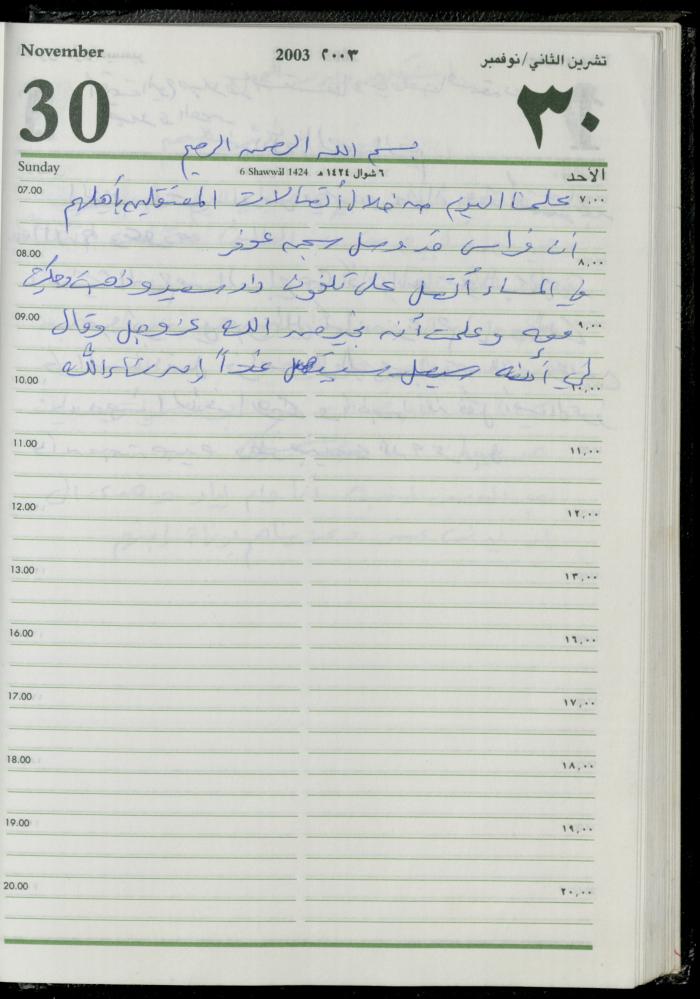 November 2003 ٢٠٠٣ تشرين الثاني/نوفمبر
30 ٣٠
بسم الله الرحمن الرحيم
Sunday 6 Shawwāl 1424 ٦ شوال ١٤٢٤ هـ الأحد
07.00 علمنا اليوم من خلال أتصالات المعتقلين بأهلهم ٧,٠٠
أن فراس قد وصل سجن عوفر
08.00 ٨,٠٠
في المساء أتصل على تلفون دار سعيد وذهبت وحكيت
09.00 معه وعلمت أنه بخير من الله عز وجل وقال ٩,٠٠
لي أنه سيتصل غداً إن شاء الله
10.00 ١٠,٠٠
11.00 ١١,٠٠
12.00 ١٢,٠٠
13.00 ١٣,٠٠
16.00 ١٦,٠٠
17.00 ١٧,٠٠
18.00 ١٨,٠٠
19.00 ١٩,٠٠
20.00 ٢٠,٠٠